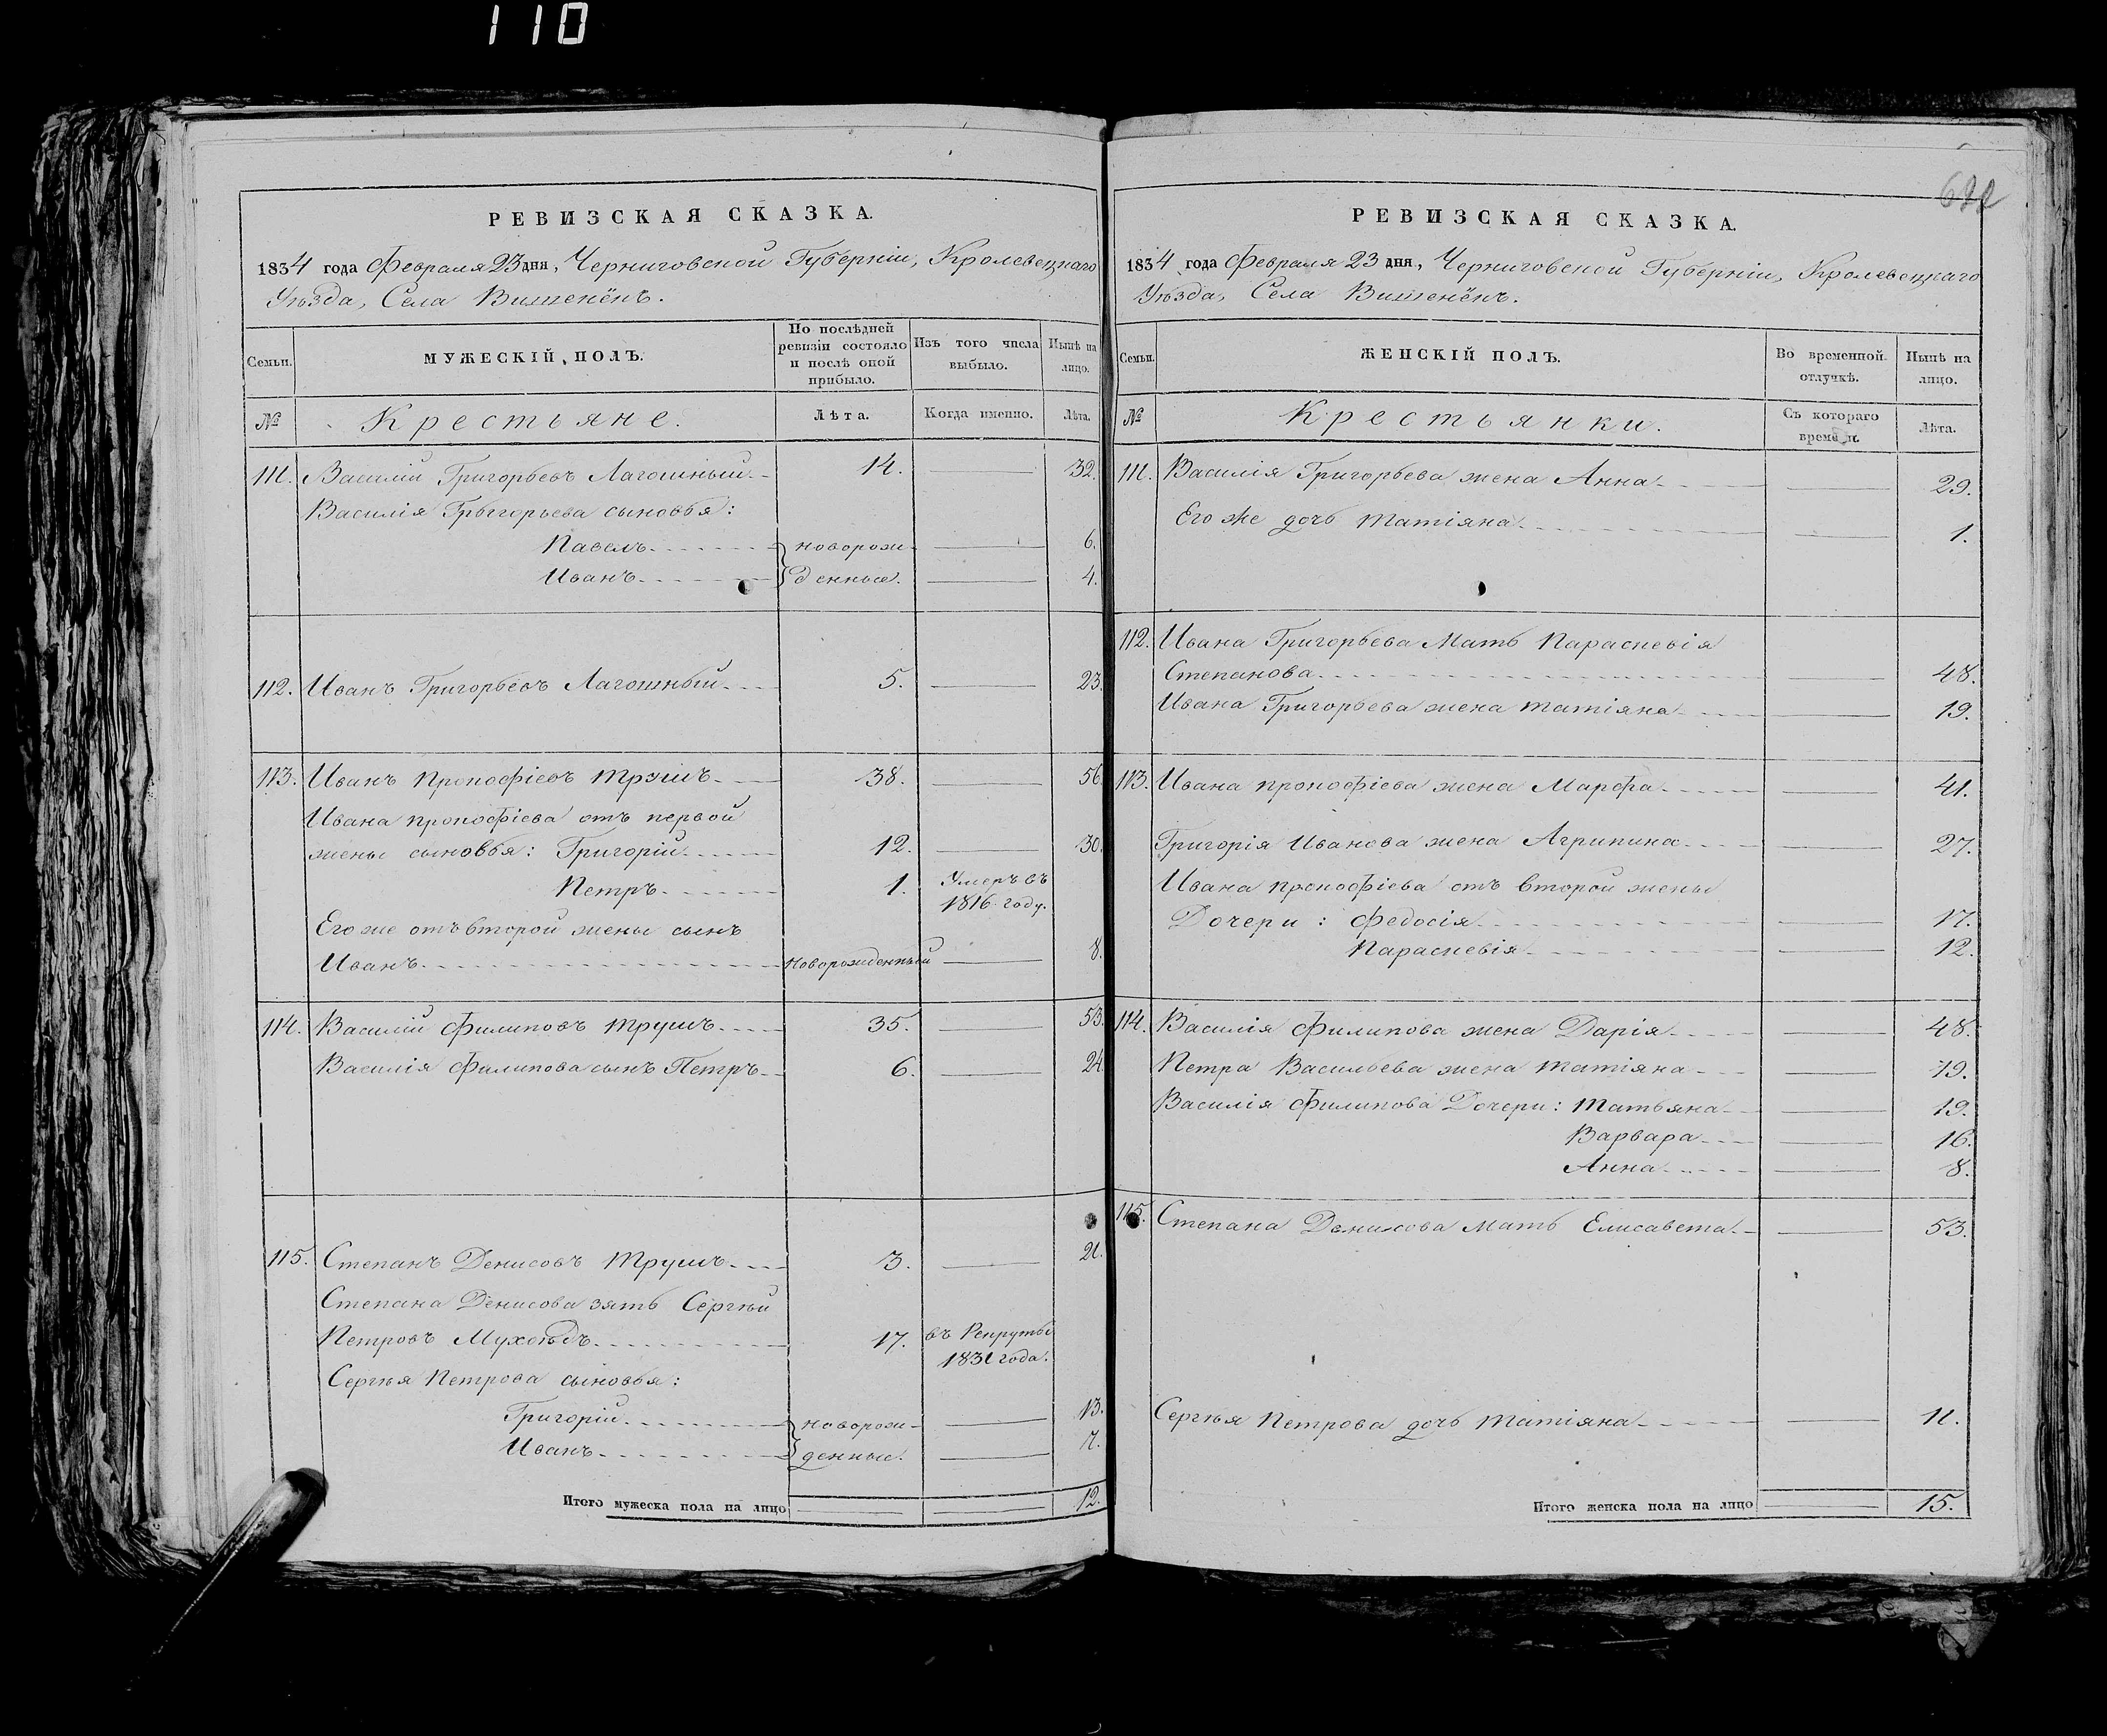 110
РЕВИЗСКАЯ СКАЗКА.
1834 года Февраля 23 дня, Черниговской Губерніи, Кролевецкаго
Уѣзда, Села Вишенёкъ.
Семьи. МУЖЕСКІЙ ПОЛЪ. По послѣдней ревизіи состояло и послѣ оной прибыло. Изъ того числа выбыло. Нынѣ на лицо.
№ Крестьяне. Лѣта. Когда именно. Лѣта.
111. Василій Григорьевъ Лагошный 14. 32.
Василія Григорьева сыновья:
Павелъ новорож- 6.
Иванъ денные. 4.
112. Иванъ Григорьевъ Лагошный 5. 23.
113. Иванъ Прокофіевъ Трушъ 38. 56.
Ивана Прокофіева отъ первой
жены сыновья: Григорій 12. 30.
Петръ 1. Умеръ въ 1816 году.
Его же отъ второй жены сынъ
Иванъ Новорожденный 8.
114. Василій Филиповъ Трушъ 35. 53.
Василія Филипова сынъ Петръ 6. 24.
115. Степанъ Денисовъ Трушъ 3. 21.
Степана Денисова зять Сергѣй
Петровъ Мухоѣдъ 17. въ Рекруты 1831 года.
Сергѣя Петрова сыновья:
Григорій новорож- 13.
Иванъ денные. 7.
Итого мужеска пола на лицо 12.
РЕВИЗСКАЯ СКАЗКА.
1834 года Февраля 23 дня, Черниговской Губерніи, Кролевецкаго
Уѣзда, Села Вишенёкъ.
Семьи. ЖЕНСКІЙ ПОЛЪ. Во временной отлучкѣ. Нынѣ на лицо.
№ Крестьянки. Съ котораго времени. Лѣта.
111. Василія Григорьева жена Анна 29.
Его же дочь Татіяна 1.
112. Ивана Григорьева Мать Параскевія
Степанова 48.
Ивана Григорьева жена Татіяна 19.
113. Ивана Прокофіева жена Марфа 41.
Григорія Иванова жена Агрипина 27.
Ивана Прокофіева отъ второй жены
Дочери: Федосія 17.
Параскевія 12.
114. Василія Филипова жена Дарія 48.
Петра Васильева жена Татіяна 19.
Василія Филипова Дочери: Татьяна 19.
Варвара 16.
Анна 8.
115. Степана Денисова Мать Елисавета 53.
Сергѣя Петрова дочь Татіяна 11.
Итого женска пола на лицо 15.